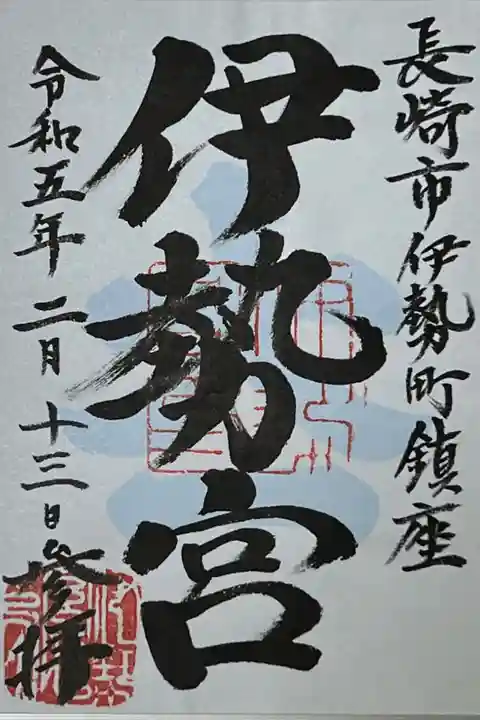 長崎市伊勢町鎮座
伊勢宮
令和五年二月十三日
参拝